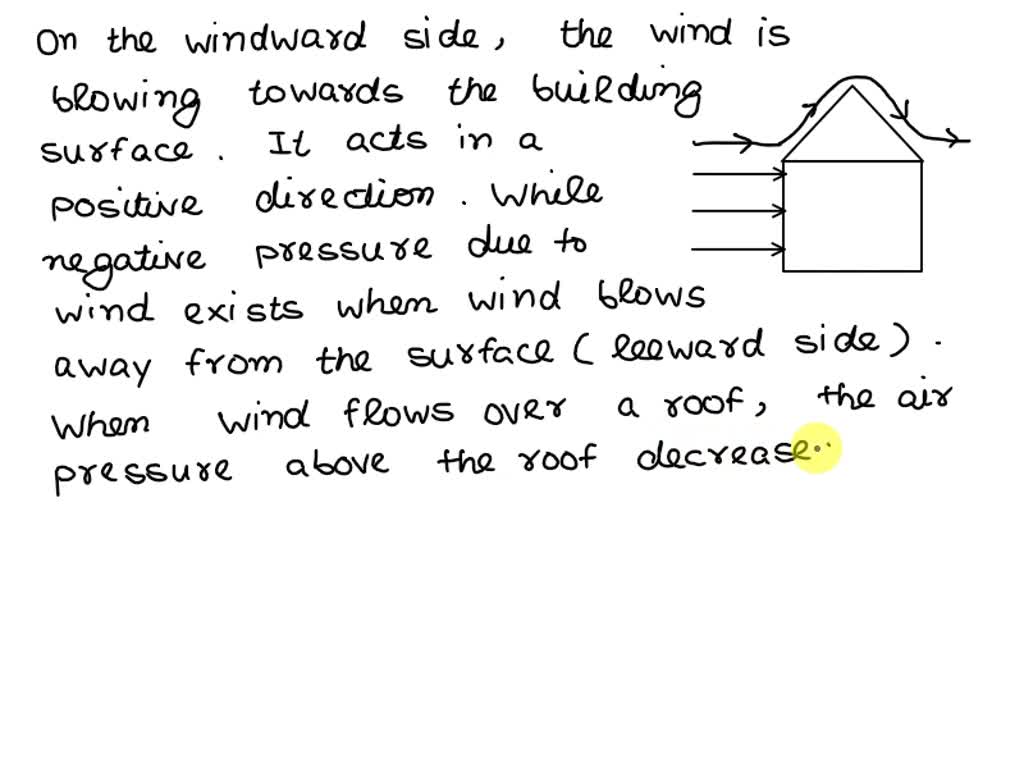 On the windward side, the wind is
blowing towards the building
surface. It acts in a
positive direction. While
negative pressure due to
wind exists when wind blows
away from the surface (leeward side).
When wind flows over a roof, the air
pressure above the roof decrease.